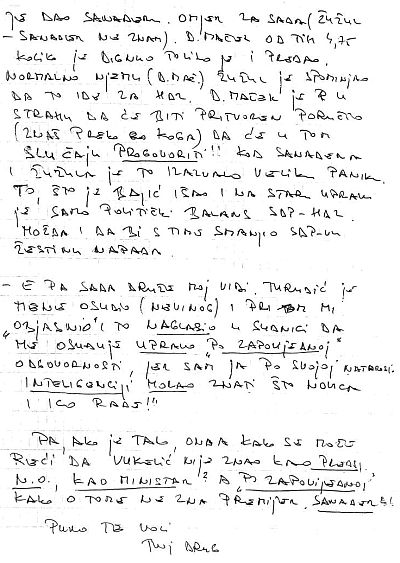 JE DAO SANADERU. OMJER ZA SADA (ŽUŽUL
- SANADER NE ZNAM). D. MAČEK OD TIH 4,75
KOLIKO JE DIGNUO TOLIKO JE I PREDAO.
NORMALNO NJEMU (D. MAČ) ŽUŽUL JE SPOMINJAO
DA TO IDE ZA HDZ. D. MAČEK JE U
STRAHU DA ĆE BITI PRITVOREN PORUČIO
(ZNAŠ PREKO KOGA) DA ĆE U TOM
SLUČAJU PROGOVORITI!! KOD SANADERA
I ŽUŽULA JE TO IZAZVALO VELIKU PANIKU.
TO, ŠTO JE BAJIĆ IŠAO I NA STARU UPRAVU
JE SAMO POLITIČKI BALANS SDP-HDZ.
MOŽDA I DA BI S TIME SMANJIO SDP-OVU
ŽESTINU NAPADA.
- E PA SADA DRUŽE MOJ VIDI. TURUDIĆ JE
MENE OSUDIO (NEVINOG) I PRI TOM MI
"OBJASNIO" I TO NAGLASIO U SUDNICI DA
ME OSUĐUJE UPRAVO "PO ZAPOVJEDNOJ"
ODGOVORNOSTI, JER SAM JA PO SVOJOJ NATPROSJ.
INTELIGENCIJI MORAO ZNATI ŠTO NOVICA
I ICO RADE!"
PA, AKO JE TAKO, ONDA KAKO SE MOŽE
REĆI DA VUKELIĆ NIJE ZNAO KAO PREDSJ.
N.O., KAO MINISTAR? A PO ZAPOVJEDNOJ
KAKO O TOME NE ZNA PREMIJER SANADER?!
PUNO TE VOLI
TVOJ DRUG